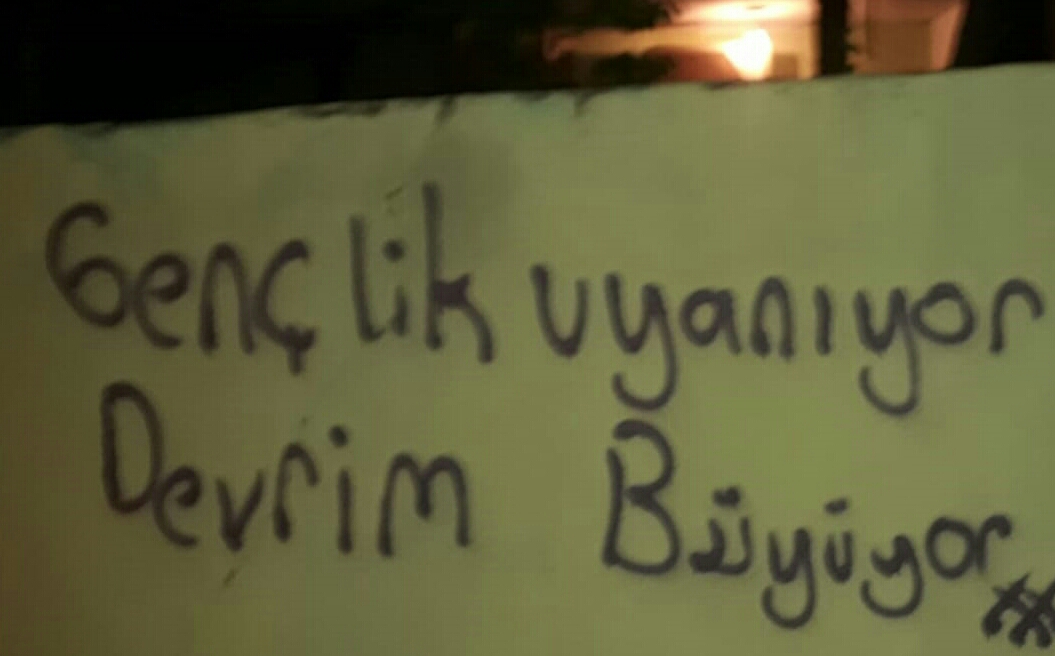 Gençlik uyanıyor
Devrim Büyüyor #